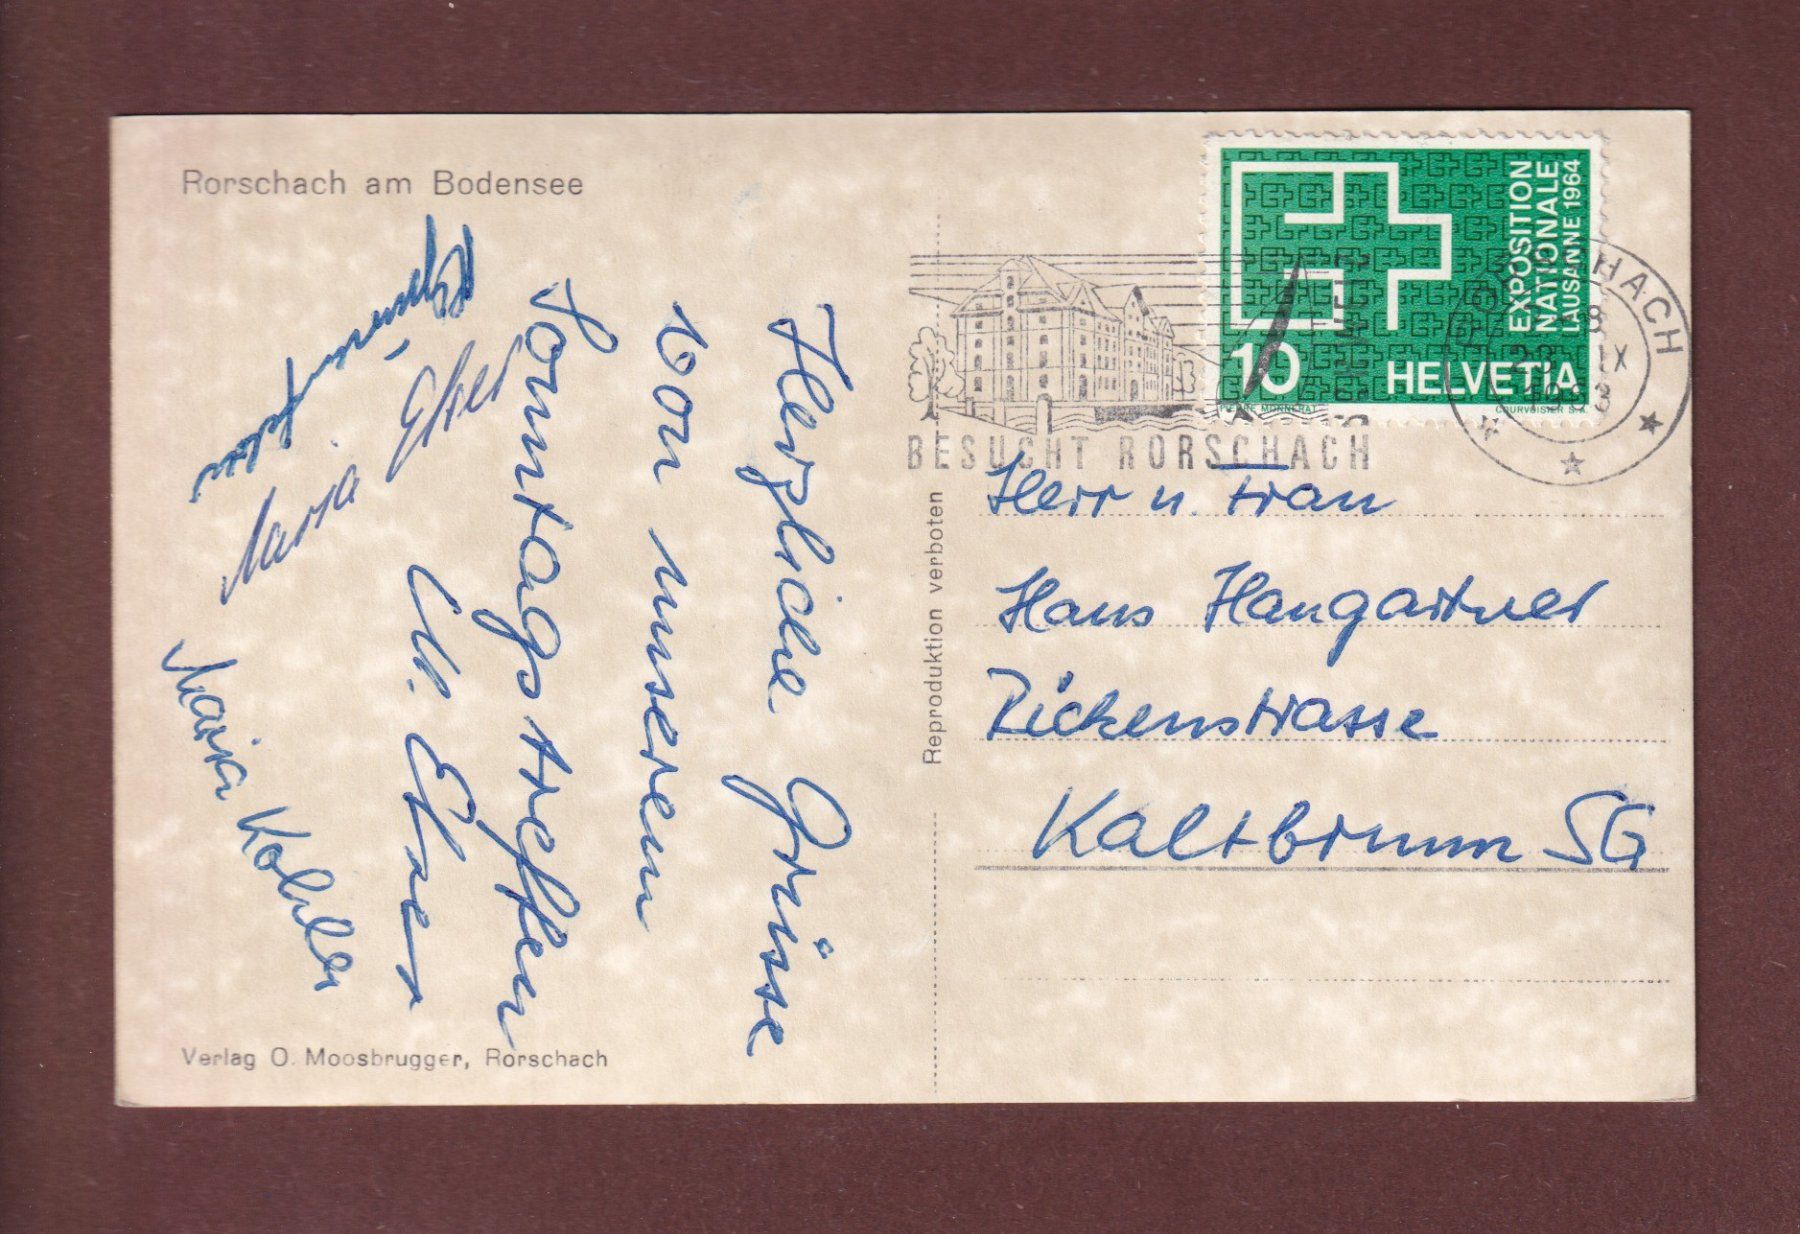 Rorschach am Bodensee
Herzliche Grüsse
von unserem
Sonntagstreffen
M. Elser
Maria Elser
Maria Kohler
Verlag O. Moosbrugger, Rorschach
Reproduktion verboten
EXPOSITION
NATIONALE
LAUSANNE 1964
10
HELVETIA
PIERRE MONNERAT
COURVOISIER S.A.
BESUCHT RORSCHACH
Herr u. Frau
Hans Hangartner
Rickenstrasse
Kaltbrunn SG